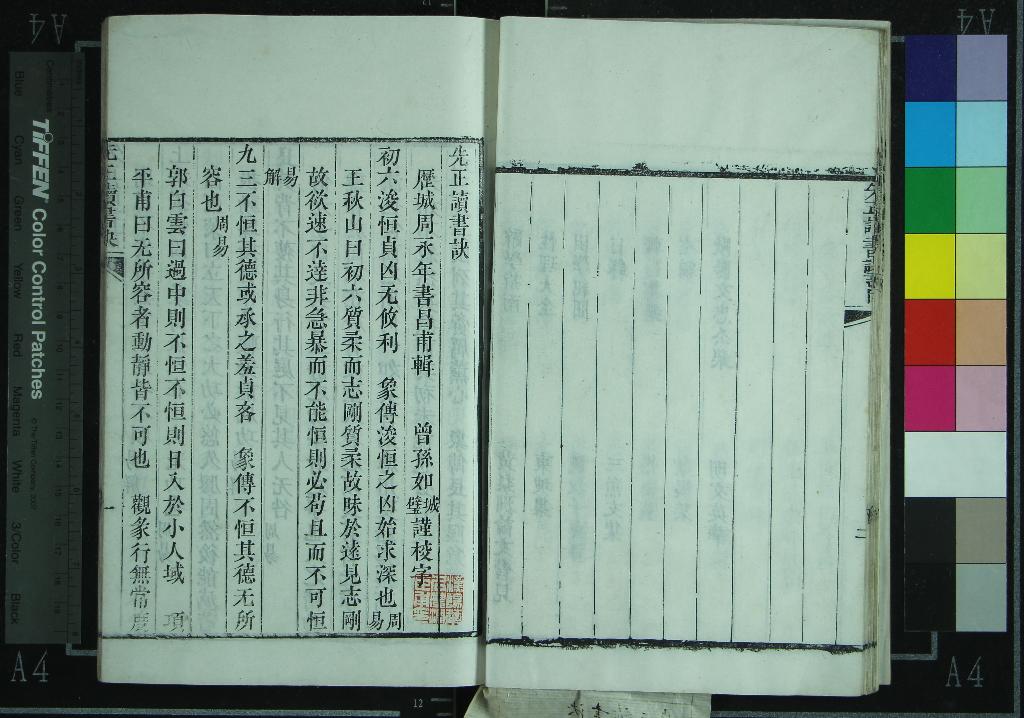 先正讀書訣
歷城周永年書昌甫輯 曾孫如城璧謹校字
初六浚恒貞凶无攸利 象傳浚恒之凶始求深也周易
王秋山曰初六質柔而志剛質柔故昧於遠見志剛
故欲速不達非急暴而不能恒則必苟且而不可恒
易解
九三不恒其德或承之羞貞吝 象傳不恒其德无所
容也周易
郭白雲曰過中則不恒不恒則日入於小人域 項
平甫曰无所容者動靜皆不可也 觀象行無常度
先正讀書訣
一
二
TIFFEN Color Control Patches
© The Tiffen Company, 2007
Centimetres
Blue
Cyan
Green
Yellow
Red
Magenta
White
3/Color
Black
A4
A4
A4
A4
12